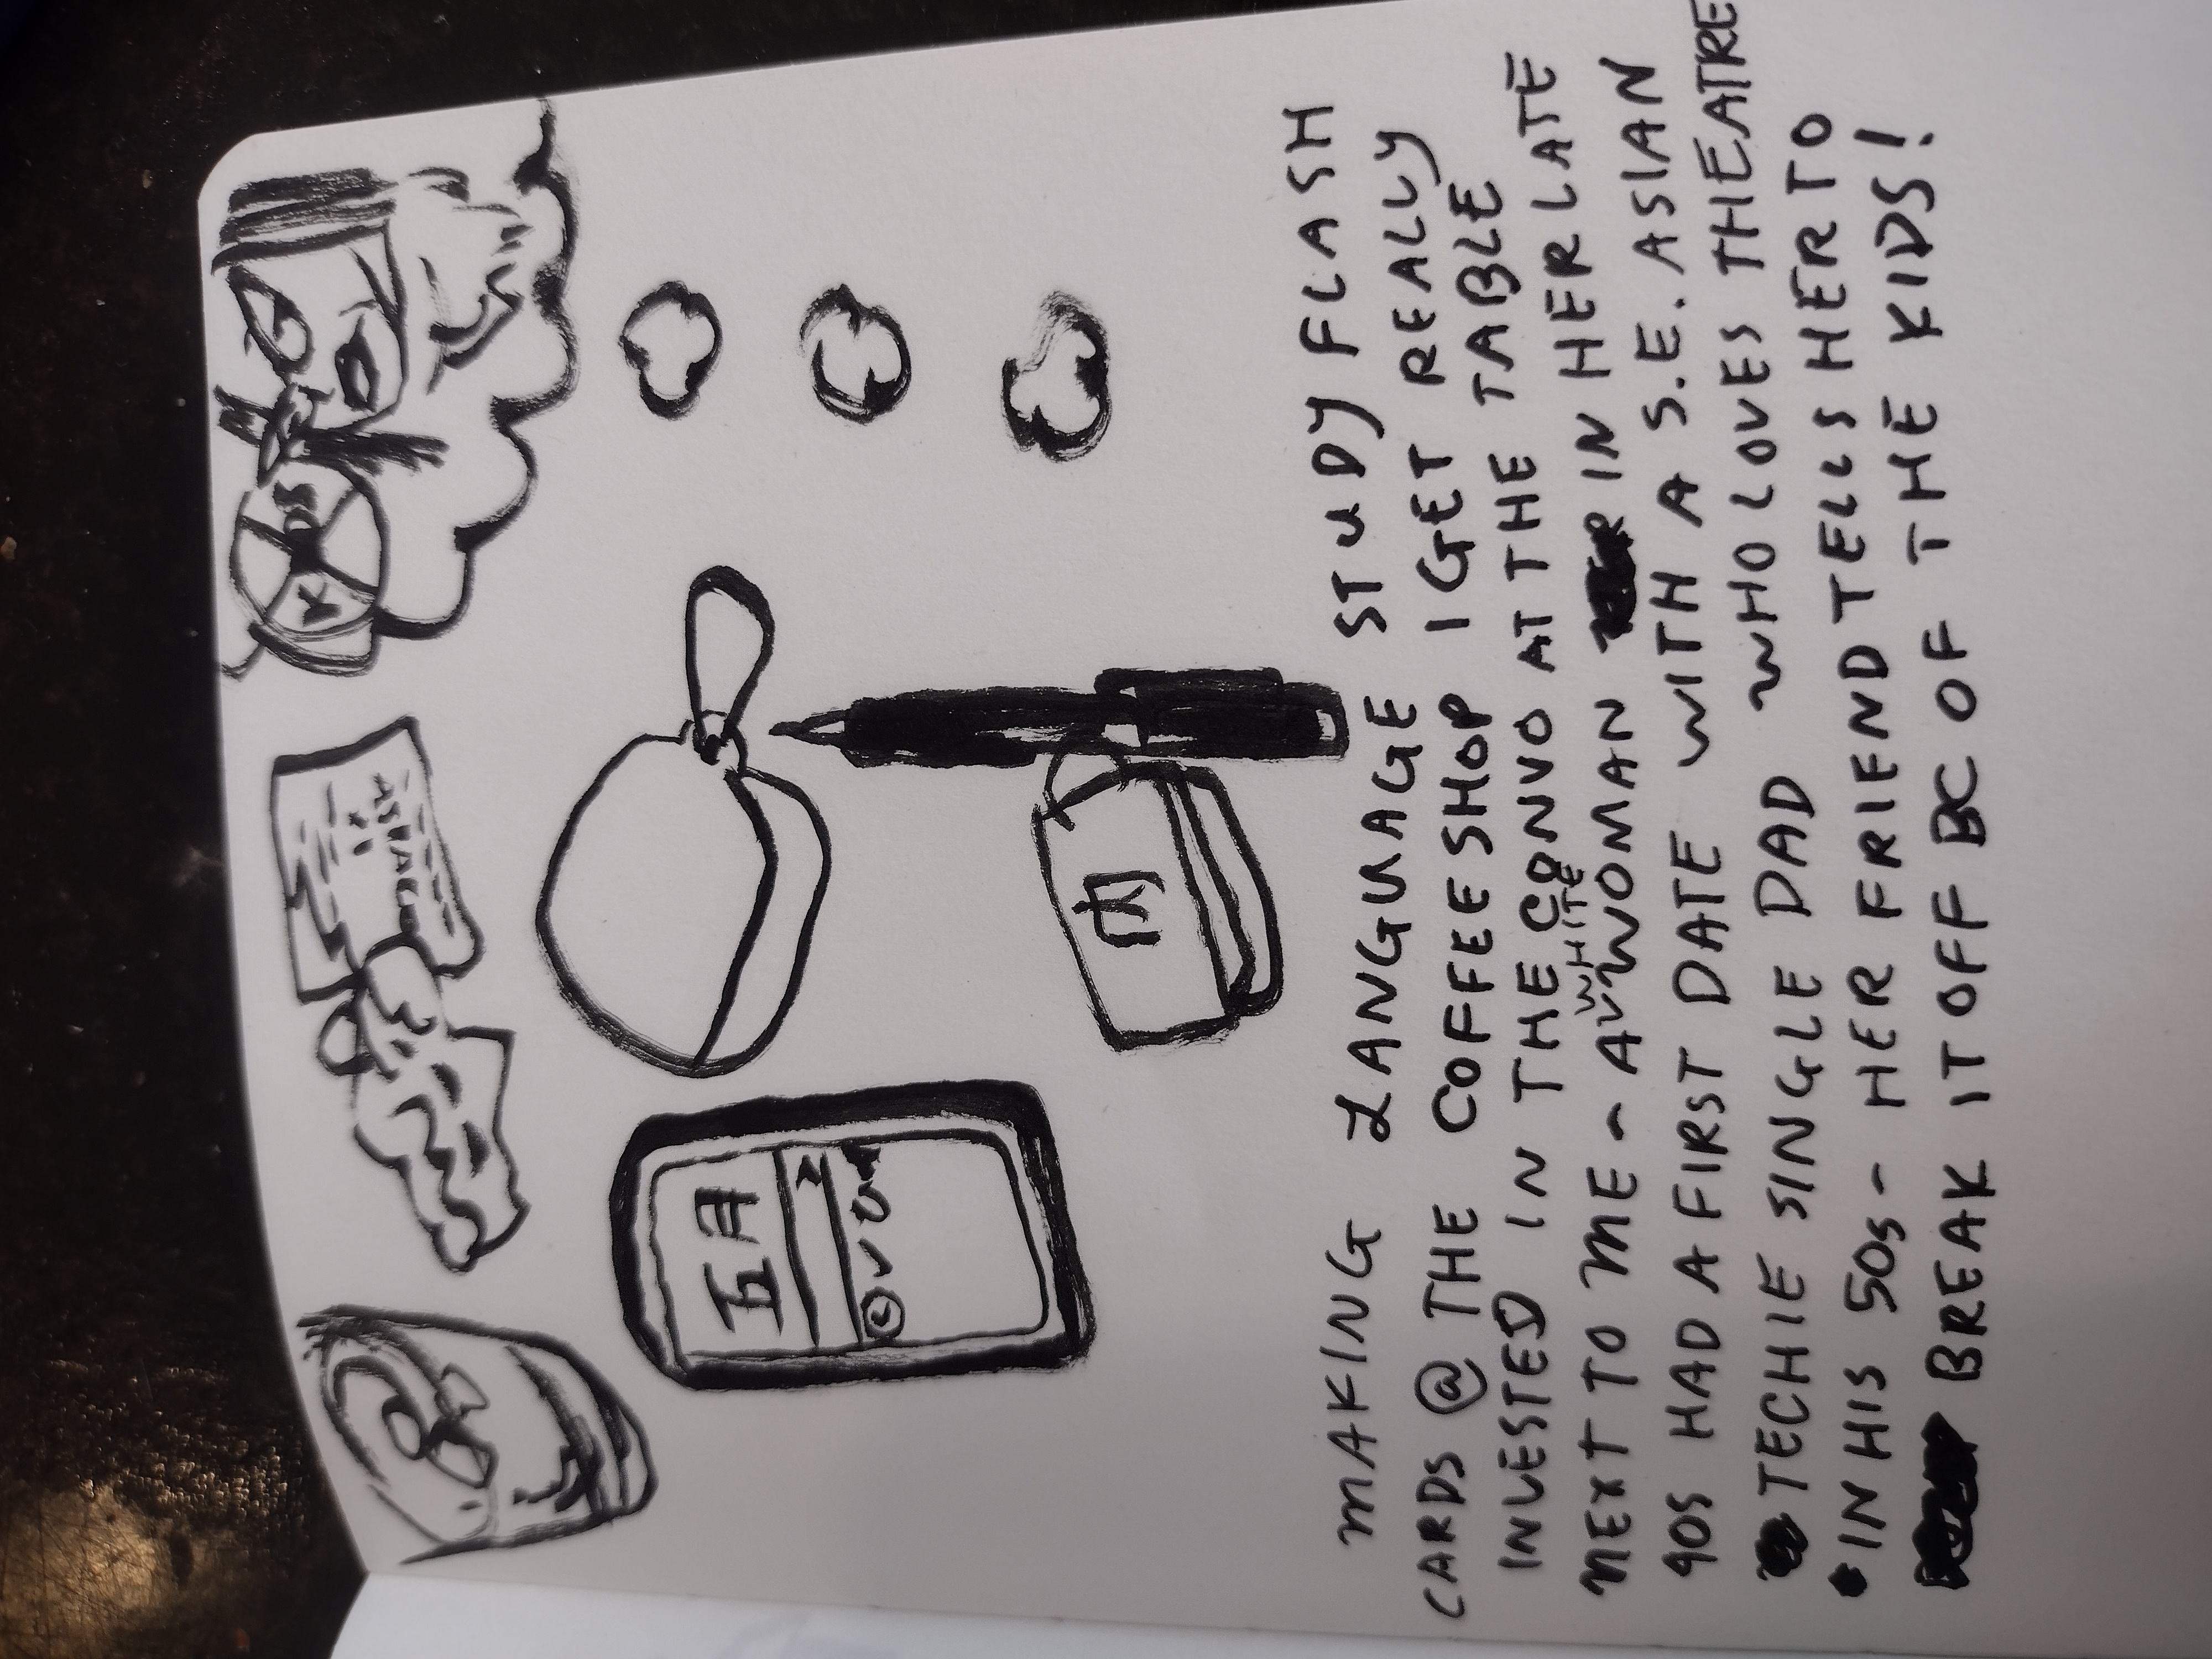 五月
月
MAKING LANGUAGE STUDY FLASH
CARDS @ THE COFFEESHOP I GET REALLY
INVESTED IN THE CONVO AT THE TABLE
NEXT TO ME - A WHITE WOMAN IN HER LATE
40S HAD A FIRST DATE WITH A S.E. ASIAN
TECHIE SINGLE DAD WHO LOVES THEATRE
IN HIS 50S - HER FRIEND TELLS HER TO
BREAK IT OFF BC OF THE KIDS!